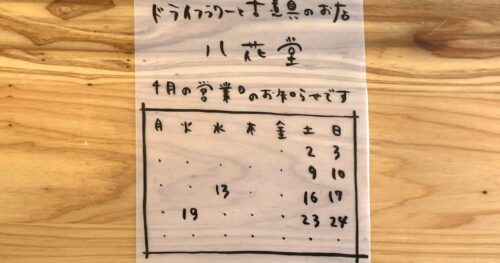 ドライフラワーと古道具のお店
八花堂
4月の営業日のお知らせです
月 火 水 木 金 土 日
・ ・ ・ ・ ・ 2 3
・ ・ ・ ・ ・ 9 10
・ ・ 13 ・ ・ 16 17
・ 19 ・ ・ ・ 23 24
・ ・ ・ ・ ・ ・ ・